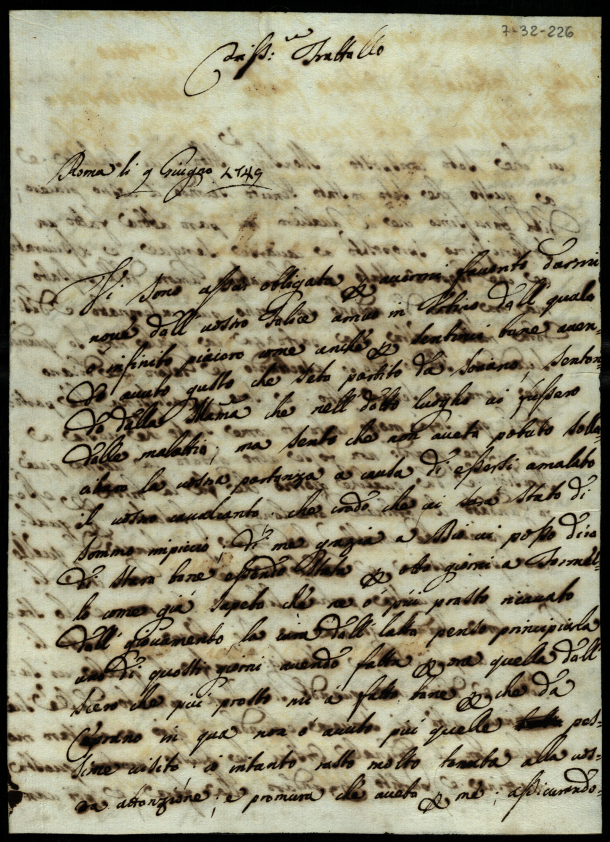 7-32-226
Cariss:mo Frattello
Roma li 9 Giugno 1749
Vi sono assai obligata p avermi favorito darmi
nove dall vostro felice arrivo in dall quale
ò infinito piacere come anche p sentirvi bene aven-
do avuto quello che sete partito da Soriano senten-
do dalla che nell detto luoghо vi fussero
dalle malattie, ma sento che non avete potuto solle-
citare la vostra partenza a causa di essersi amalato
il vostro cavalcante che credo che vi sia stato di
sommo impiccio, di me grazia a Dio vi posso dire
di stare bene essendo stata p otto giorni a
lo come già sapete che ne ò più prosto ricavato
dell giovamento, la cura dell latte penso principiarla
un di questi giorni avendo fatta p me quella dell
siero che più prosto mi a fatto bene p che da
Ceprano in qua non ò avuto più quelle pes-
sime visite; io intanto resto molto tenuta alla vos-
ra attenzione, e premura che avete p me; assicurando-